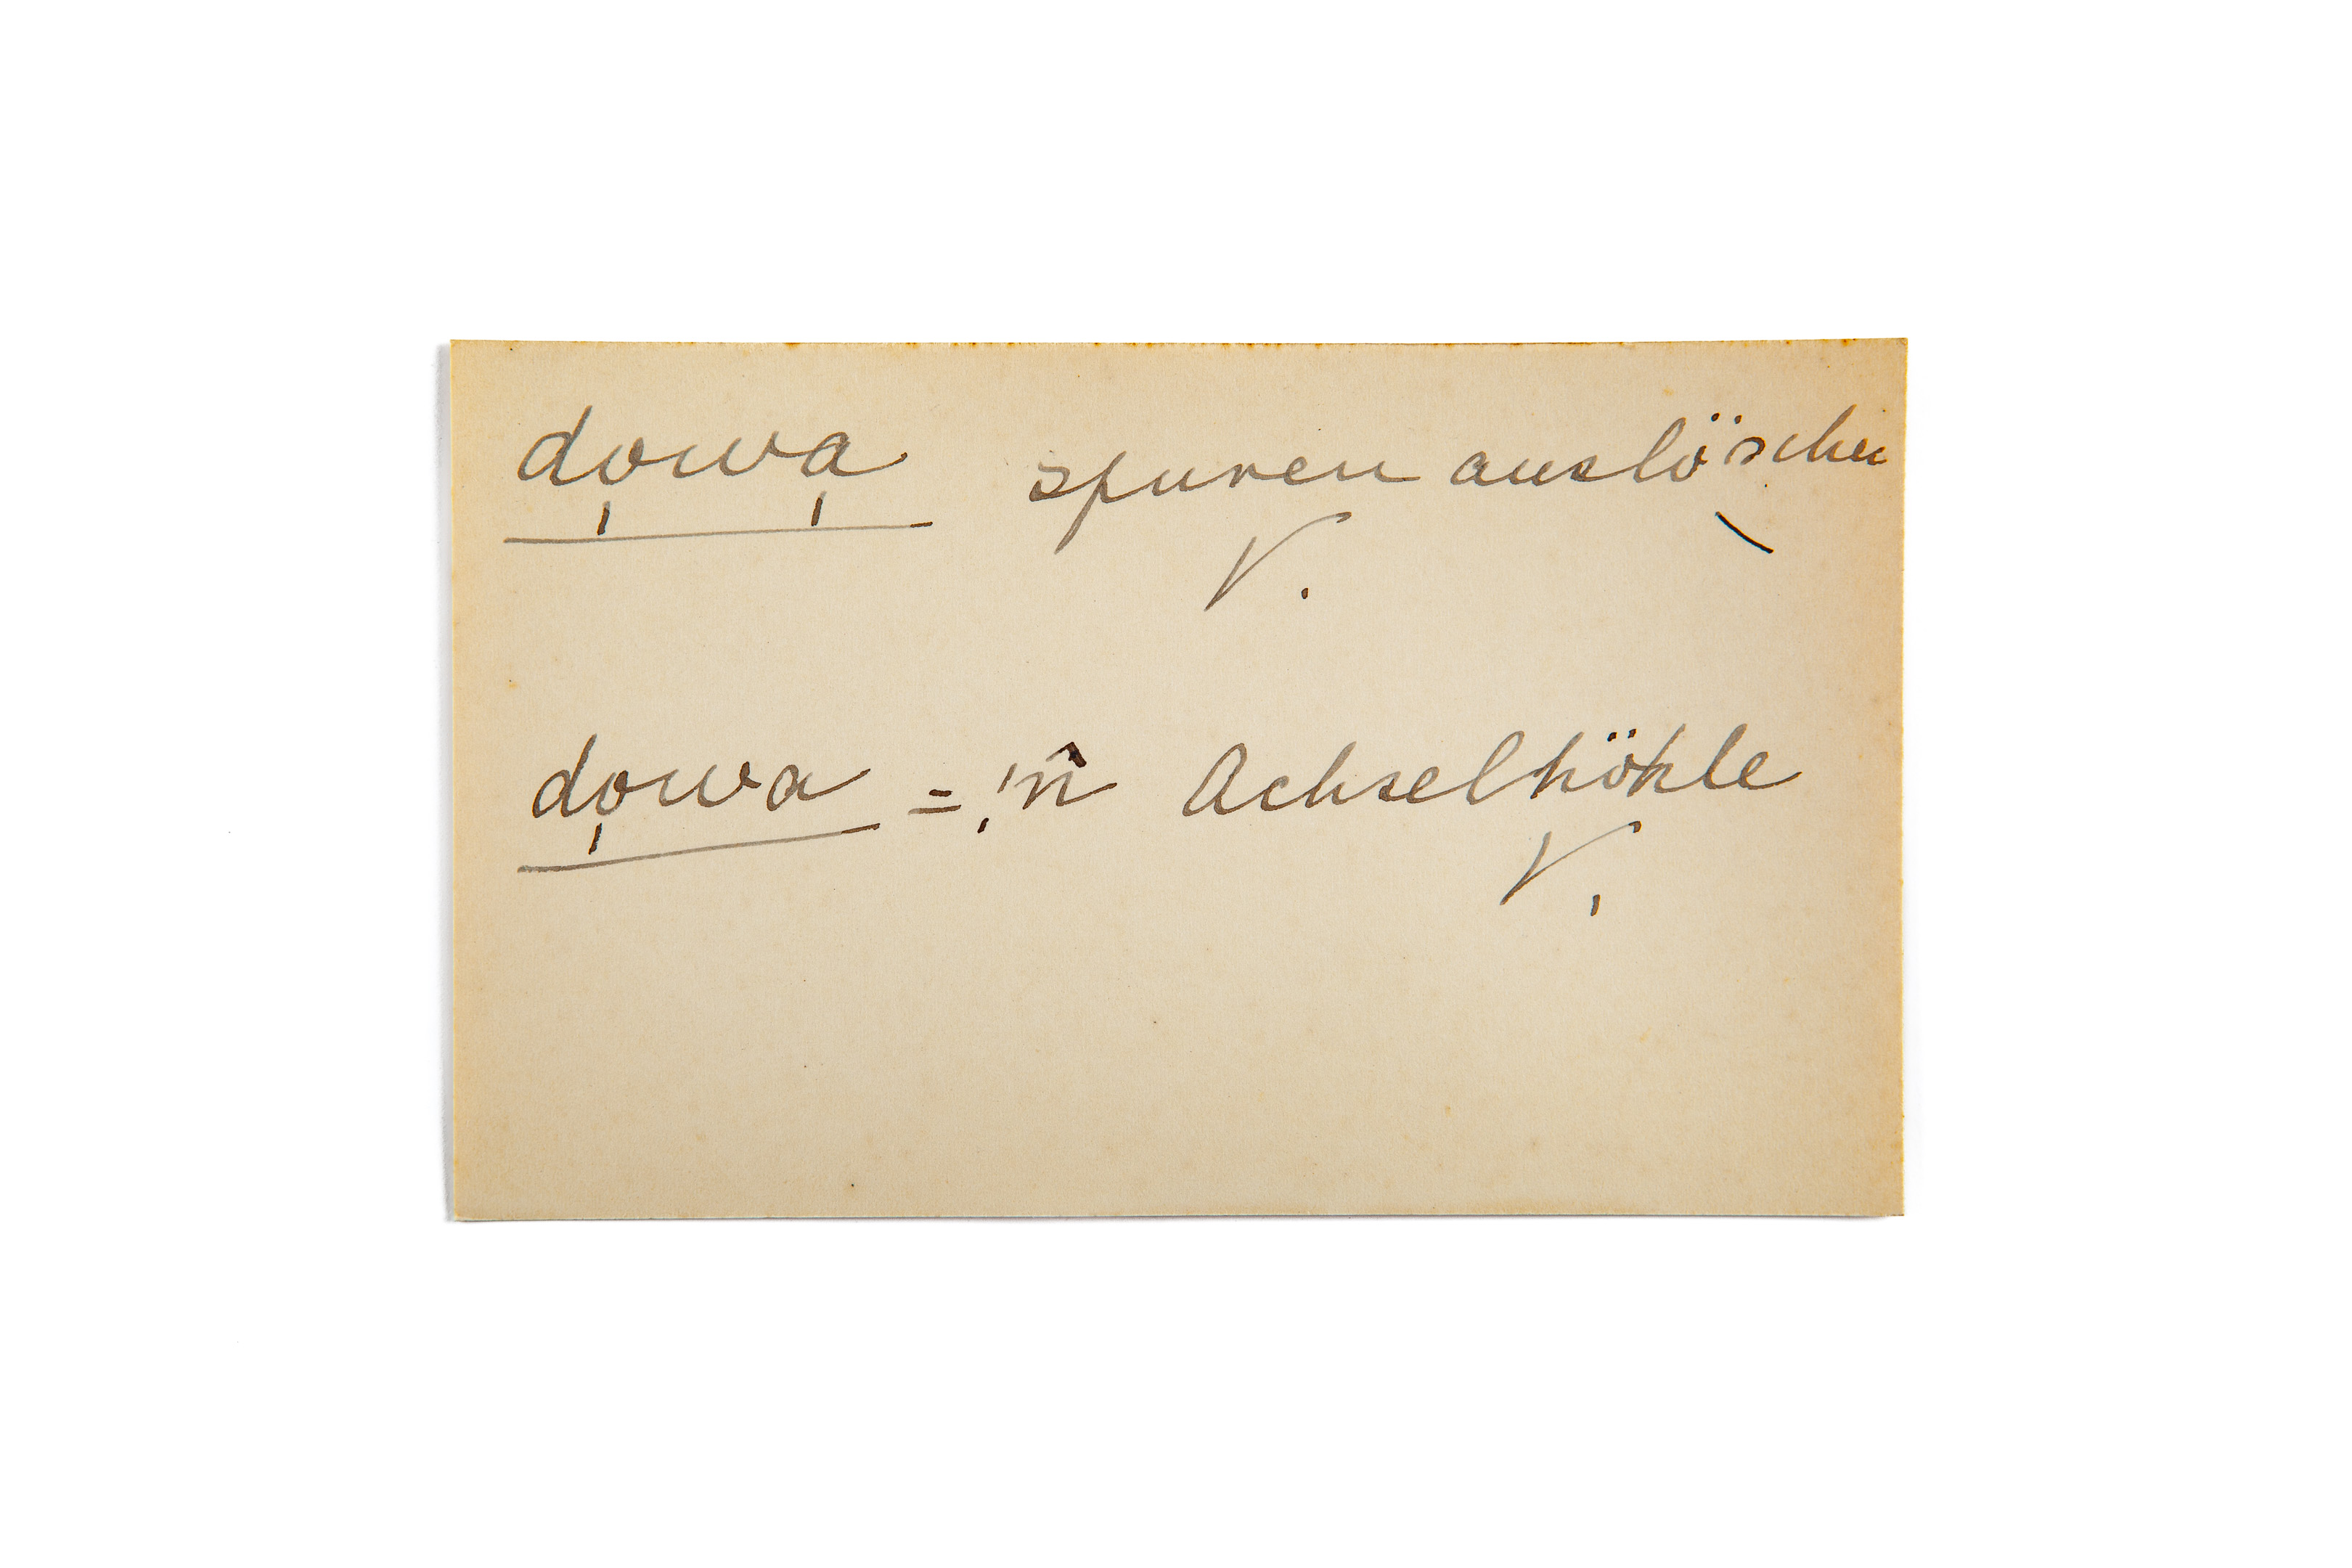 do̩wa̩ spuren auslöschen
V.
do̩wa = ,'m̂ Achselhöhle
V,